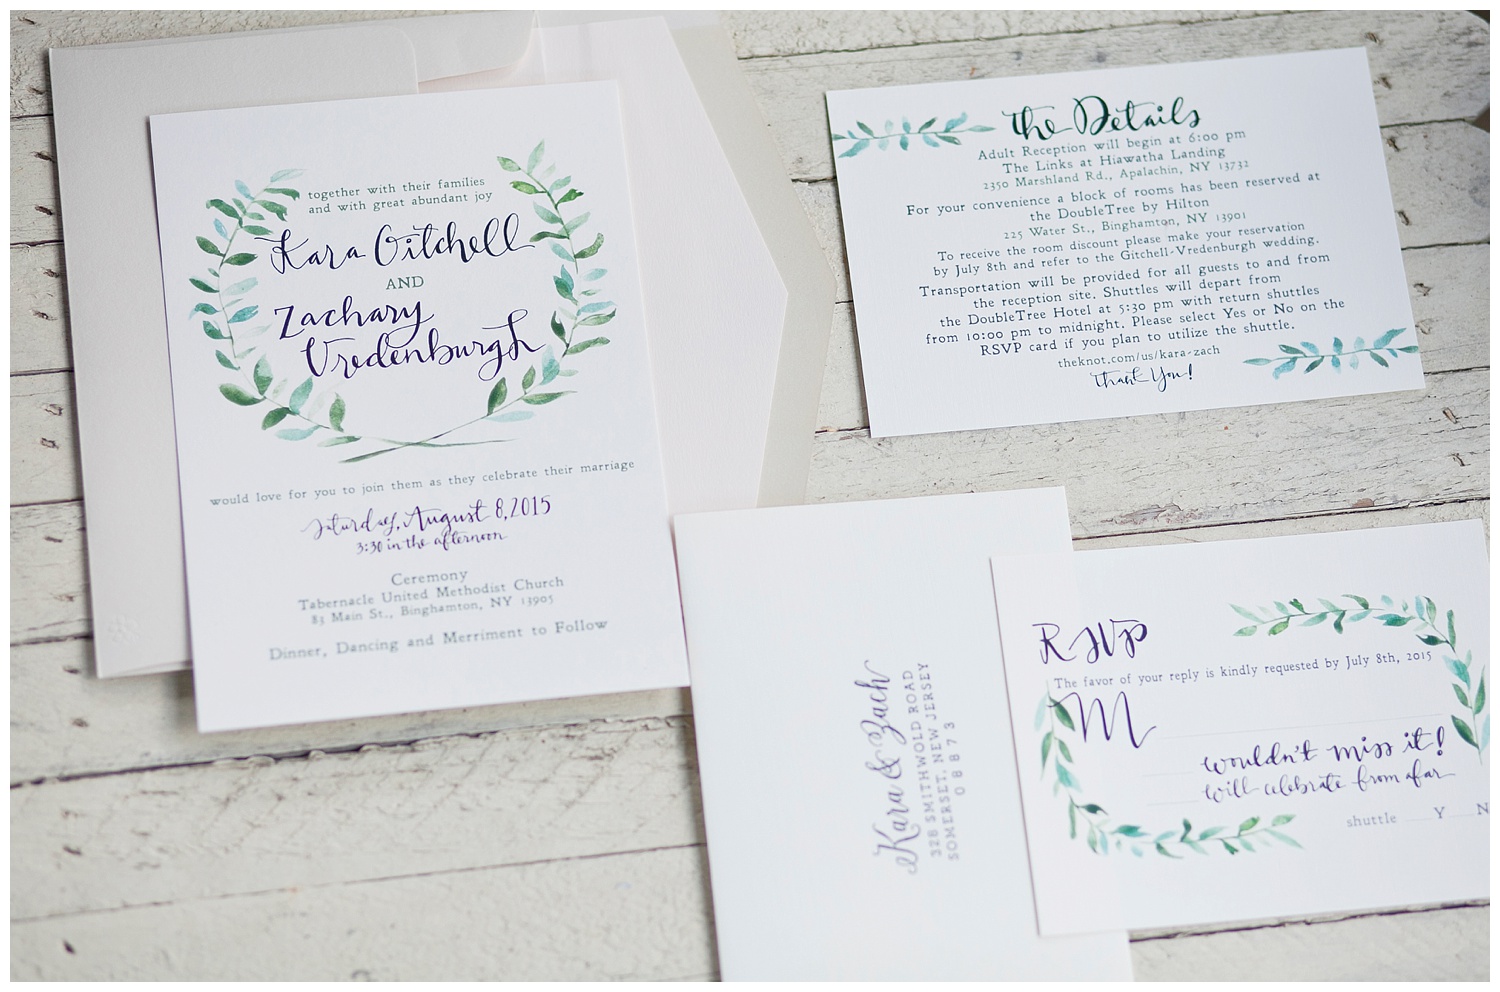 together with their families
and with great abundant joy
Kara Gitchell
AND
Zachary
Vredenburgh
would love for you to join them as they celebrate their marriage
Saturday, August 8, 2015
3:30 in the afternoon
Ceremony
Tabernacle United Methodist Church
83 Main St., Binghamton, NY 13905
Dinner, Dancing and Merriment to Follow
the Details
Adult Reception will begin at 6:00 pm
The Links at Hiawatha Landing
2350 Marshland Rd., Apalachin, NY 13732
For your convenience a block of rooms has been reserved at
the DoubleTree by Hilton
225 Water St., Binghamton, NY 13901
To receive the room discount please make your reservation
by July 8th and refer to the Gitchell-Vredenburgh wedding.
Transportation will be provided for all guests to and from
the reception site. Shuttles will depart from
the DoubleTree Hotel at 5:30 pm with return shuttles
from 10:00 pm to midnight. Please select Yes or No on the
RSVP card if you plan to utilize the shuttle.
theknot.com/us/kara-zach
Thank You!
Kara & Zach
328 SMITHWOLD ROAD
SOMERSET, NEW JERSEY
08873
RSVP
The favor of your reply is kindly requested by July 8th, 2015
M
wouldn't miss it!
will celebrate from afar
shuttle Y N